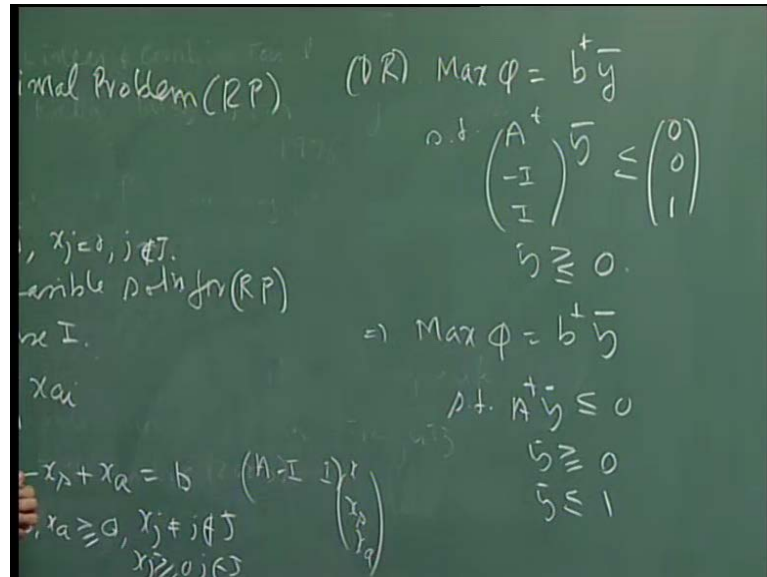 imal Problem (RP)
, xj=0, j∉J.
asible soln for (RP)
se I.
xai
-xs + xa = b (A -I I) (x xs xa)
, xa ≥ 0, xj ≠ j∉J
xj ≥ 0 j∈J
(DR) Max φ = b^t ȳ
s.t. (A^t -I I) ȳ ≤ (0 0 1)
ȳ ≷ 0.
=) Max φ = b^t ȳ
s.t. A^t ȳ ≤ 0
ȳ ≥ 0
ȳ ≤ 1